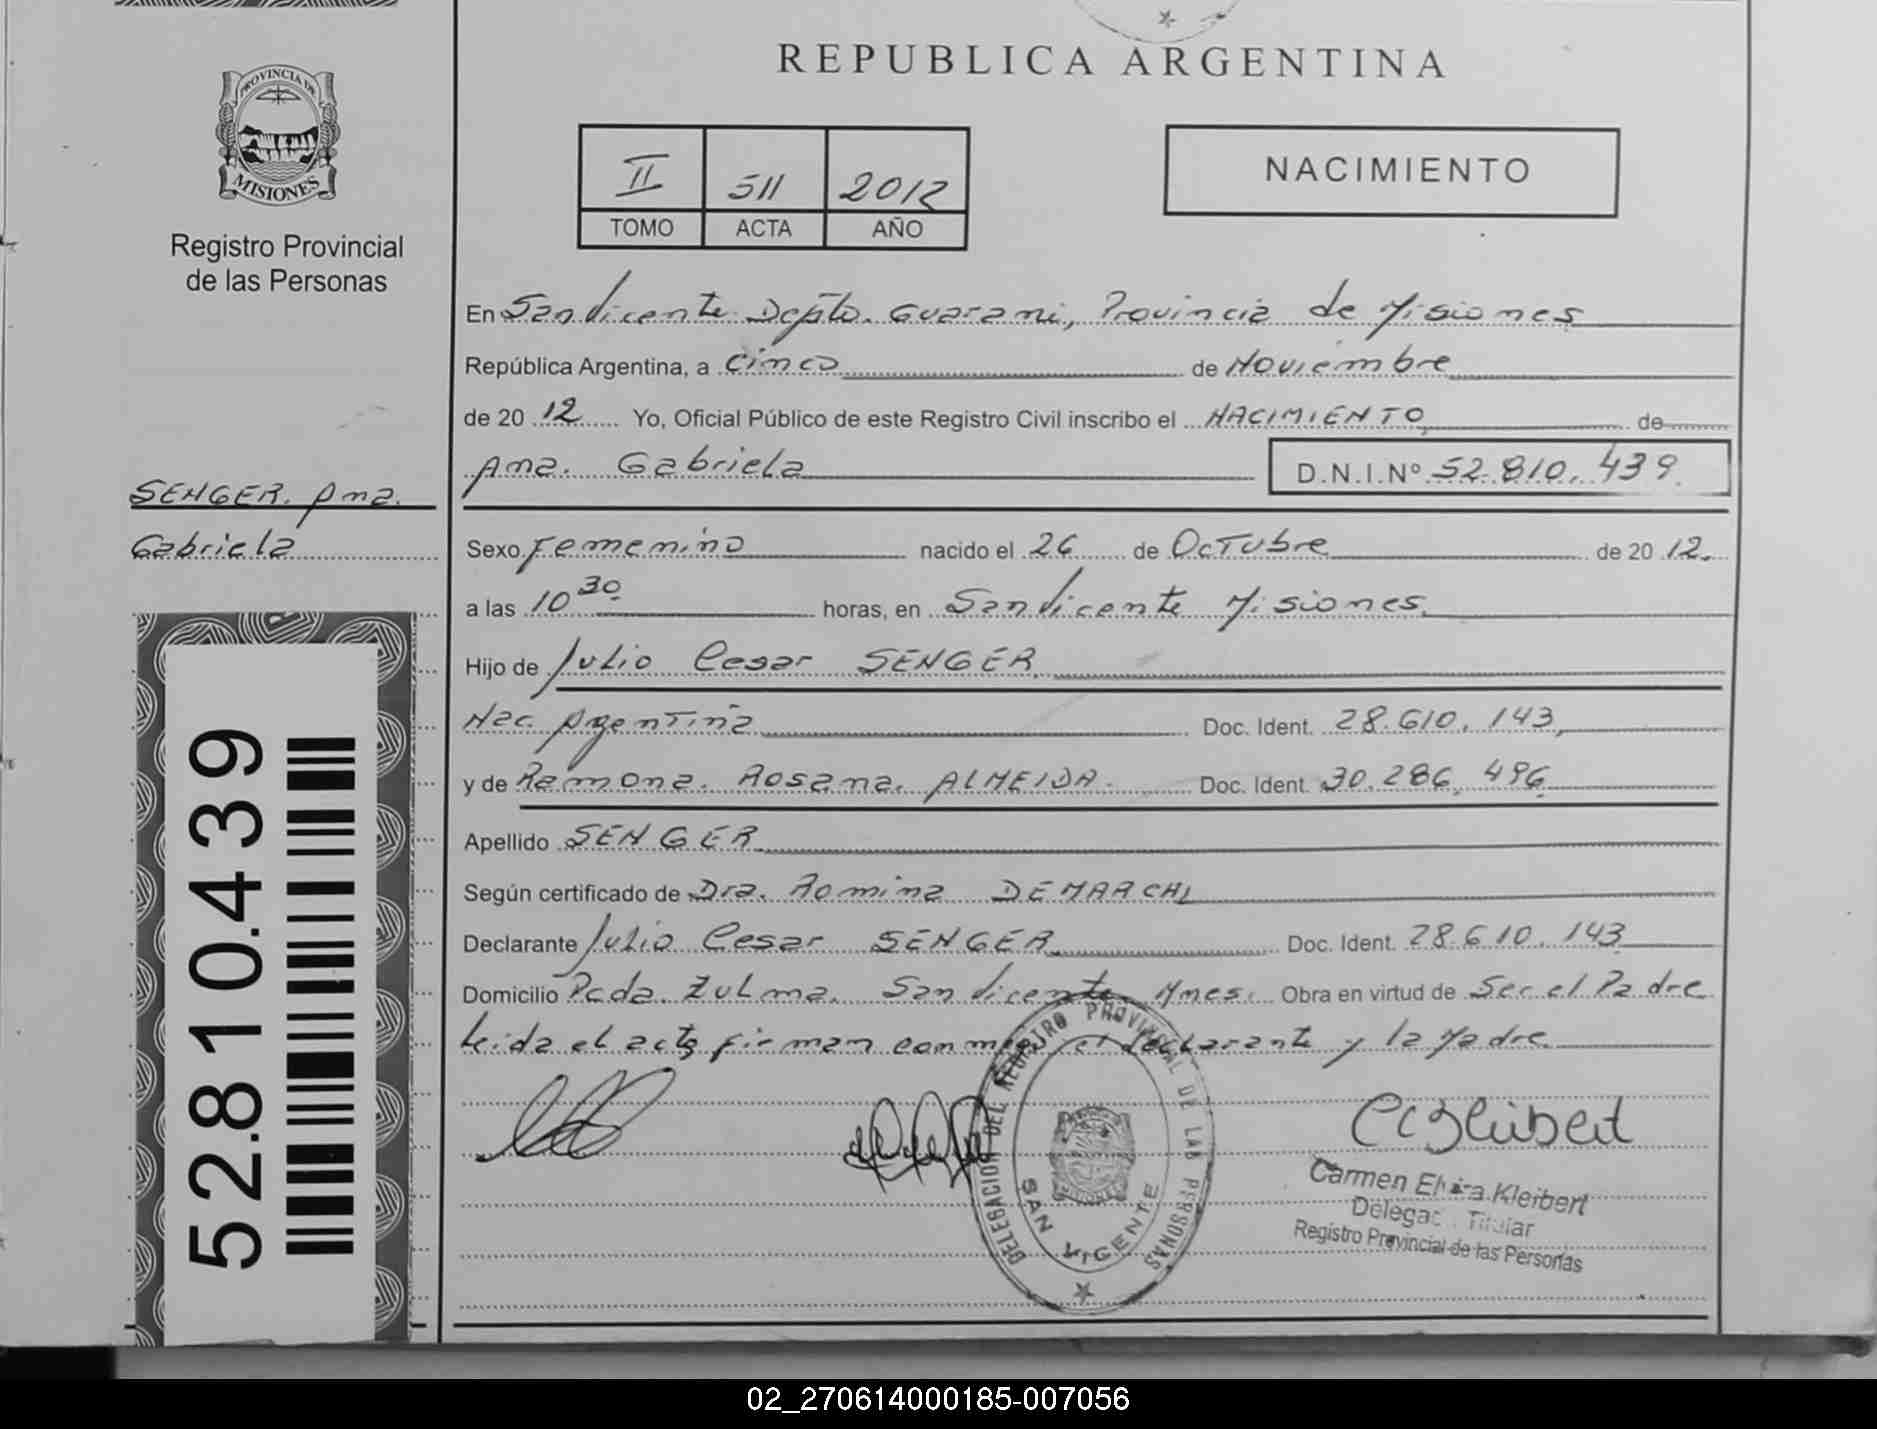 REPUBLICA ARGENTINA
PROVINCIA DE
MISIONES
Registro Provincial
de las Personas
II 511 2012
TOMO ACTA AÑO
NACIMIENTO
En San Vicente Depto. Guarani, Provincia de Misiones
República Argentina, a cinco de Noviembre
de 20 12 Yo, Oficial Público de este Registro Civil inscribo el NACIMIENTO de
Ana Gabriela D.N.I.Nº 52.810.439
SENGER. Ana.
Gabriela
Sexo Femenino nacido el 26 de Octubre de 20 12.
a las 10 30 horas, en San Vicente Misiones
Hijo de Julio Cesar SENGER
Nac. Argentina Doc. Ident. 28.610.143
y de Ramona Rosana ALMEIDA Doc. Ident. 30.286.496
Apellido SENGER
Según certificado de Dra. Romina DEMARCHI
Declarante Julio Cesar SENGER Doc. Ident. 28.610.143
Domicilio Pcda. Zulma. San Vicente Mnes. Obra en virtud de Ser el Padre
Leida el acta firman conmigo el declarante y la Madre
52.810.439
DELEGACION DEL REGISTRO PROVINCIAL DE LAS PERSONAS
SAN VICENTE
Carmen Elvira Kleibert
Delegada Titular
Registro Provincial de las Personas
02_270614000185-007056